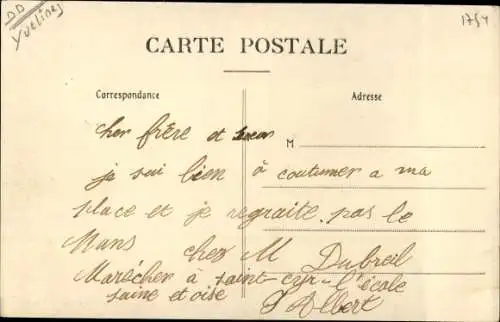 DD
Yvelines
1784
CARTE POSTALE
Correspondance
Adresse
M
cher frère et seur
je sui bien à coutumer a ma
place et je regraite pas le
Mans chez M Dubreil
Marécher à saint-cyr-l'école
saine et oise
D Albert